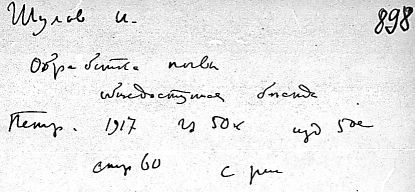 Шулов И. 898
Обработка почвы
общедоступная беседа
Петр. 1917 ц 50к изд 5ое
стр 60 с рис